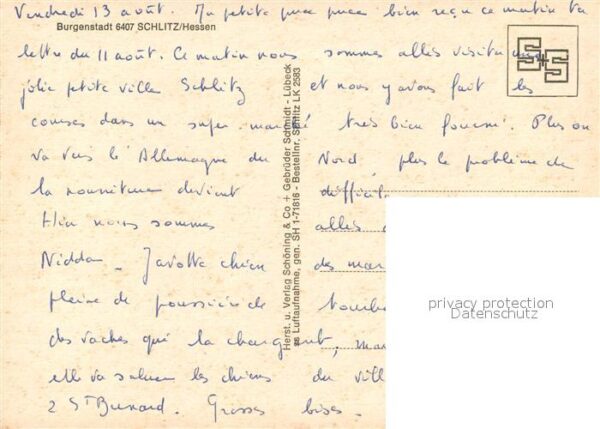 Vendredi 13 août. Ma petite puce puce bien reçu ce matin ta
Burgenstadt 6407 SCHLITZ/Hessen
lettre du 11 août. Ce matin nous sommes allés visiter une
jolie petite ville Schlitz et nous y avons fait les
courses dans un super marché très bien fourni. Plus on
va vers l'Allemagne du Nord, plus le problème de
la nourriture devient difficile
Hier nous sommes allés
Nidda. Javotte chien des
pleine de poussière de
des vaches qui la chargent,
elle va saluer les chiens du
2 St Bernard. Grosses bises.
Herst. u. Verlag Schöning & Co + Gebrüder Schmidt - Lübeck
Luftaufnahme, gen. SH 1-71816 - Bestellnr. Schlitz LK 2583
S+S
privacy protection
Datenschutz